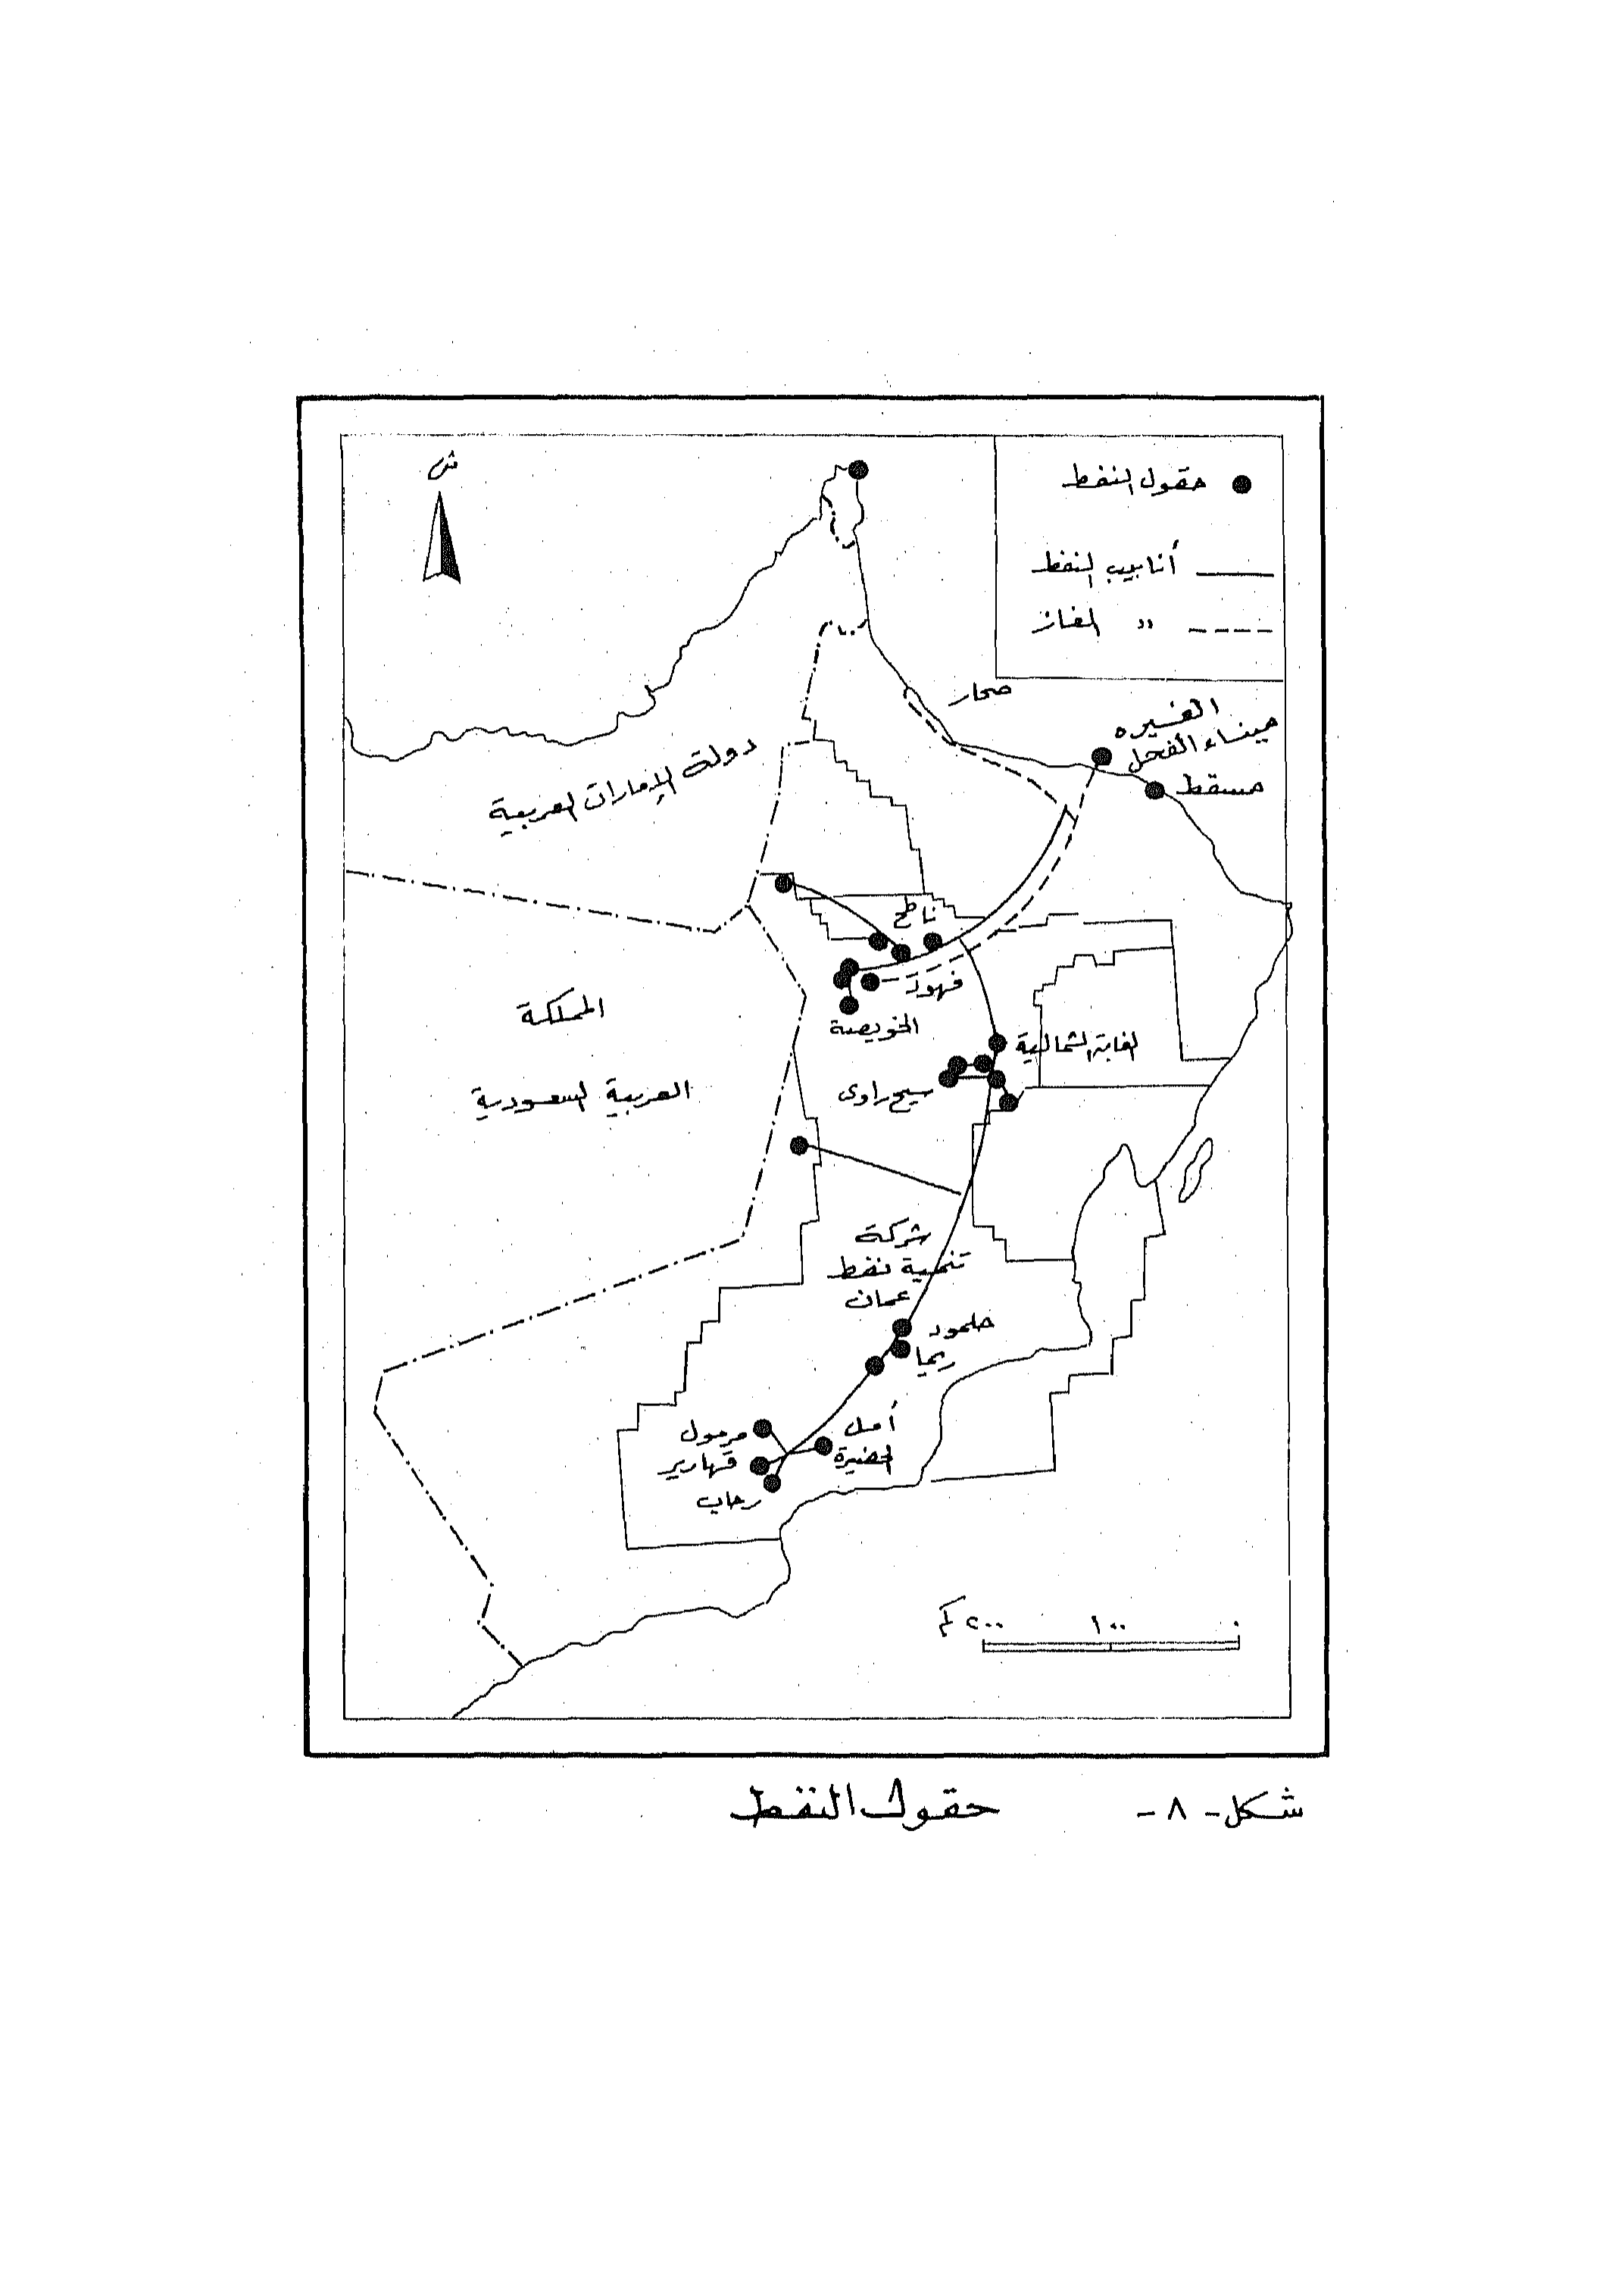 ش
حقول النفط
أنابيب النفط
〃 الغاز
صحار
ميناء الفحل
مسقط
دولة الإمارات العربية
ناطح
فهود
الخويصة
المملكة
العربية السعودية
الغابة الشمالية
سيح راوى
شركة
تنمية نفط
عمان
حلمود
ريما
أمل
مرمول
قهارير
رحاب
٢٠٠ كم ١٠٠ ٠
شكل - ٨ - حقول النفط